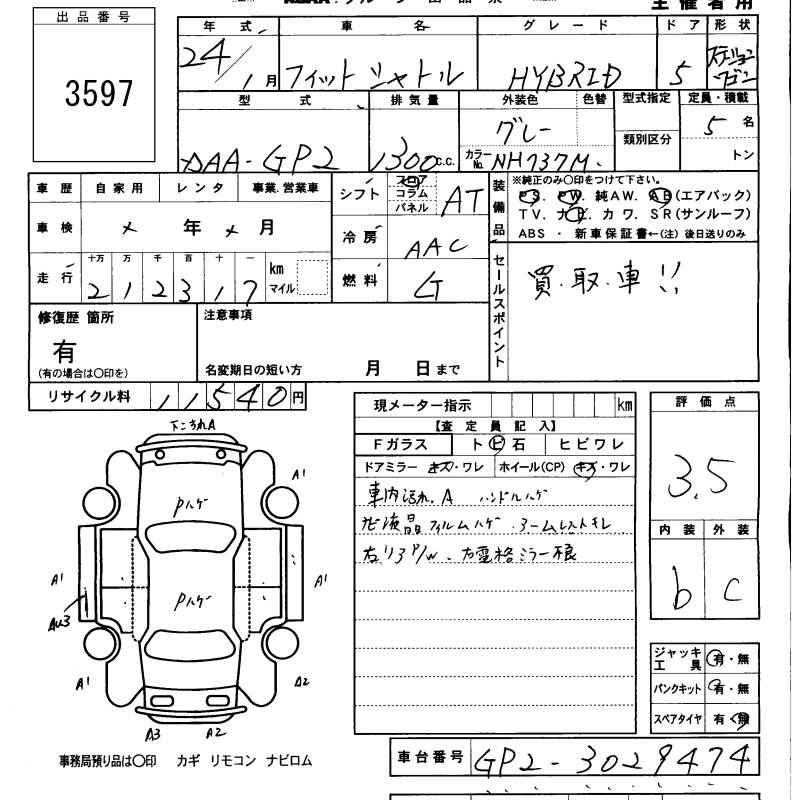 出品番号
3597
年式 車名 グレード ドア 形状
24/1月 フィットシャトル HYBRID 5 ステーションワゴン
型式 排気量 外装色 色替 型式指定 定員・積載
DAA-GP2 1300c.c. グレー 類別区分 5名
カラーNo. NH737M. トン
車歴 自家用 レンタ 事業.営業車
車検 メ 年 メ 月
走行 十万 万 千 百 十 一
212317 km マイル
シフト フロア コラム パネル AT
冷房 AAC
燃料 G
装備品
※純正のみ〇印をつけて下さい。
PS. PW. 純AW. AB(エアバック)
TV. ナビ. カワ. SR(サンルーフ)
ABS・新車保証書←(注)後日送りのみ
セールスポイント
買.取.車!!
修復歴 箇所
有
(有の場合は〇印を)
注意事項
名変期日の短い方 月 日まで
リサイクル料 11540円
現メーター指示 km
【査定員記入】
Fガラス トビ石 ヒビワレ
ドアミラー キズ・ワレ ホイール(CP) キズ・ワレ
車内汚れ.A ハンドルハゲ
液晶フィルムハゲ.アームレストキレ
右リヤP/W.右電格ミラー不良
評価点
3.5
内装 外装
b c
ジャッキ工具 有・無
パンクキット 有・無
スペアタイヤ 有・無
下こすれA
A1
Pハゲ
A1
A1
Pハゲ
AU3
A1
A2
A3 A2
事務局預り品は〇印 カギ リモコン ナビロム
車台番号 GP2-3029474